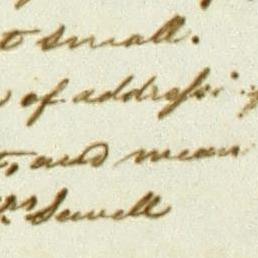 small.
of addressi
and mean
rs Sewell